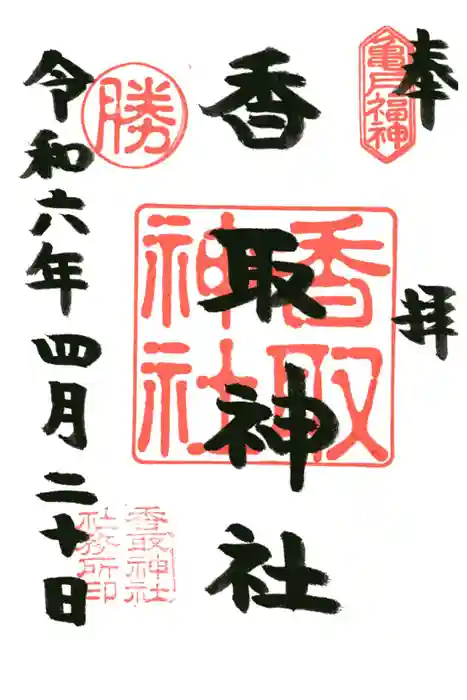 奉拝
亀戸福神
香取神社
香取
神社
勝
令和六年四月二十日
香取神社
社務所印